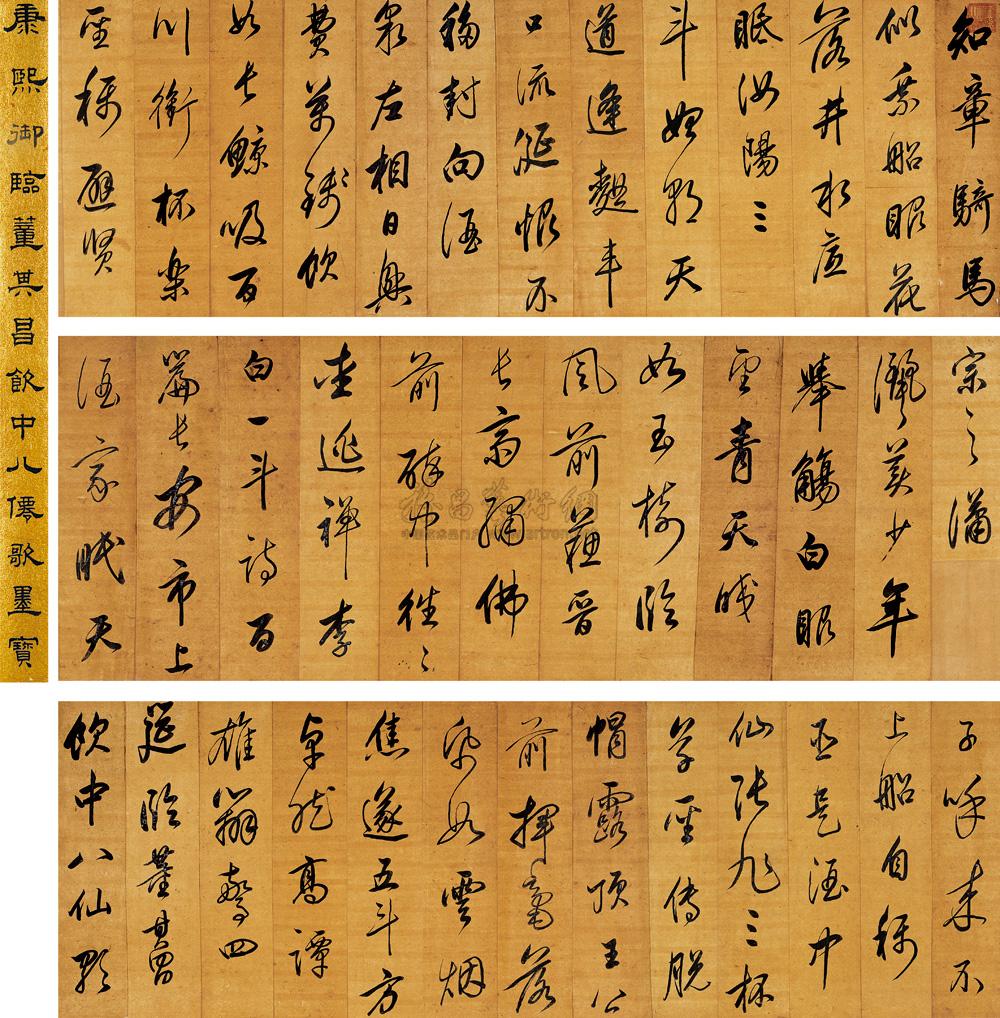 康熙御臨董其昌飲中八僊歌墨寶
知章騎馬
似乘船眼花
落井水底
眠汝陽三
斗始朝天
道逢麴車
口流涎恨不
移封向酒
泉左相日興
費萬錢飲
如長鯨吸百
川銜杯樂
聖稱避賢
宗之瀟
灑美少年
舉觴白眼
望青天皎
如玉樹臨
風前蘇晉
長齋繡佛
前醉中往〻
逃禪李
白一斗詩百
篇長安市上
酒家眠天
子呼來不
上船自稱
臣是酒中
仙張旭三杯
草聖傳脫
帽露頂王公
前揮毫落
紙如雲烟
焦遂五斗方
卓然高譚
雄辯驚四
筵臨董其昌
飲中八仙歌
雅昌藝術網